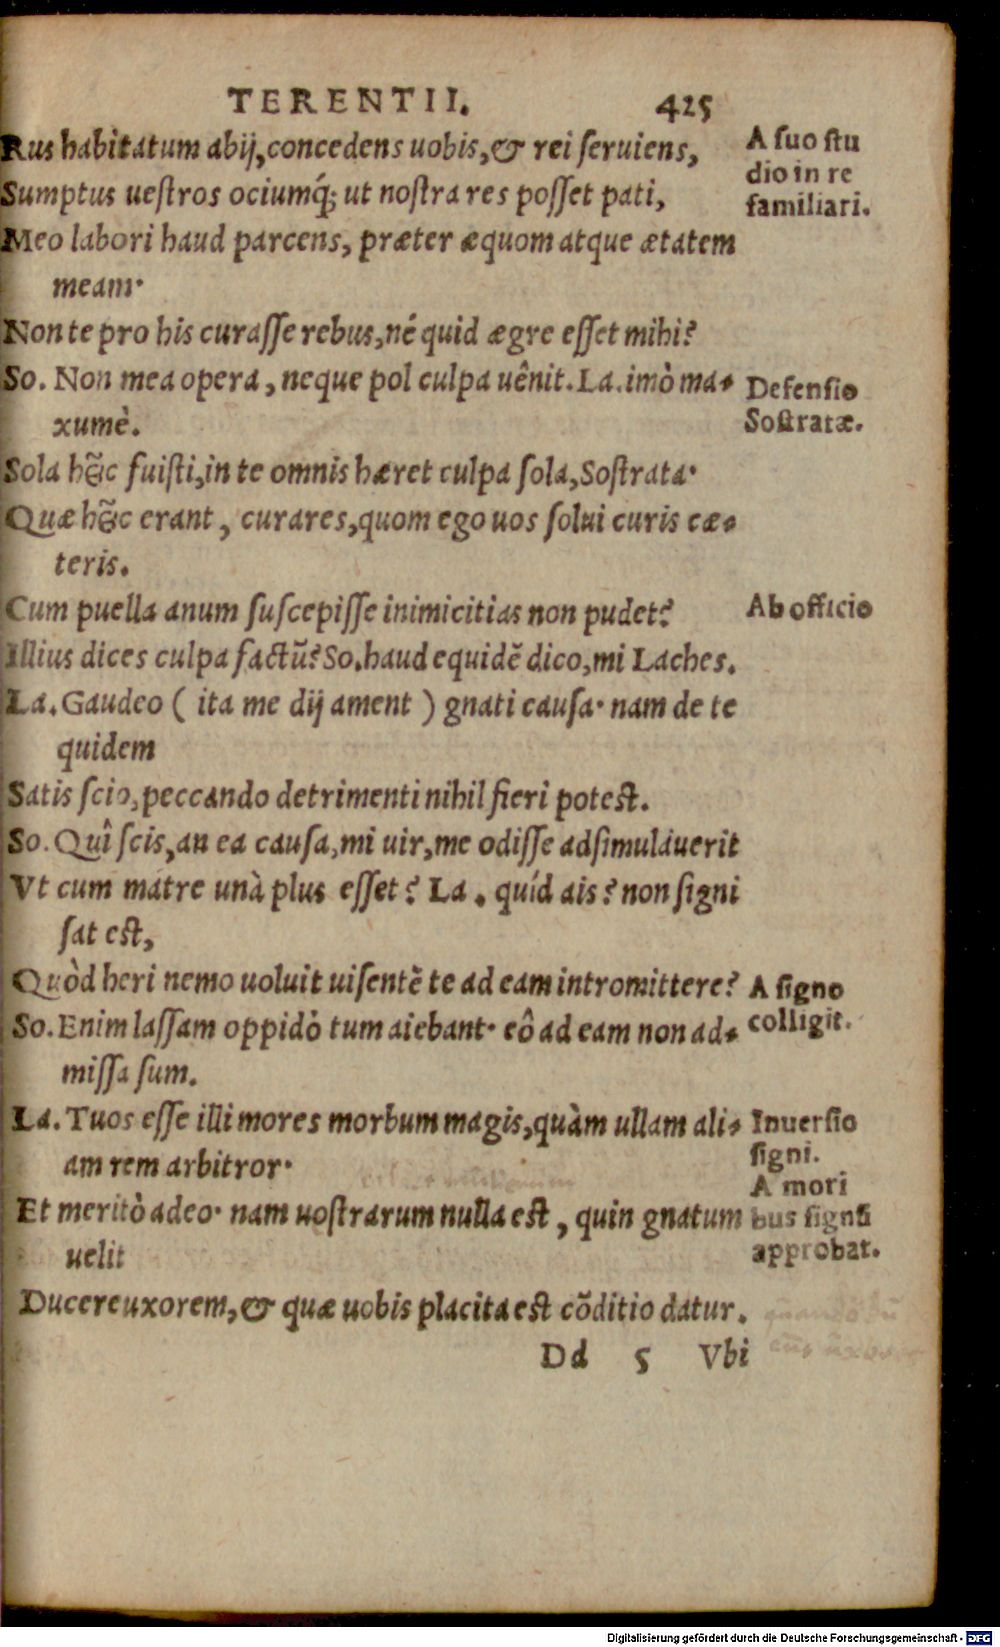 TERENTII. 425
Rus habitatum abij, concedens uobis, & rei seruiens,
Sumptus uestros ociumq́; ut nostra res posset pati,
Meo labori haud parcens, præter æquom atque ætatem
meam·
Non te pro his curasse rebus, né quid ægre esset mihi?
So. Non mea opera, neque pol culpa uênit. La. imò ma-
xumè.
Sola hîc fuisti, in te omnis hæret culpa sola, Sostrata·
Quæ hîc erant, curares, quom ego uos solui curis cæ-
teris.
Cum puella anum suscepisse inimicitias non pudet?
Illius dices culpa factũ? So. haud equidẽ dico, mi Laches.
La. Gaudeo ( ita me dij ament ) gnati causa· nam de te
quidem
Satis scio, peccando detrimenti nihil fieri potest.
So. Quî scis, an ea causa, mi uir, me odisse adsimulauerit
Vt cum matre unà plus esset? La. quíd ais? non signi
sat est,
Quòd heri nemo uoluit uisentẽ te ad eam intromittere?
So. Enim lassam oppidò tum aiebant· eô ad eam non ad-
missa sum.
La. Tuos esse illi mores morbum magis, quàm ullam ali-
am rem arbitror·
Et meritò adeo· nam uostrarum nulla est, quin gnatum
uelit
Ducere uxorem, & quæ uobis placita est cõditio datur.
Dd 5 Vbi
A suo stu
dio in re
familiari.
Defensio
Sostratæ.
Ab officio
A signo
colligit.
Inuersio
signi.
A mori
bus signũ
approbat.
Digitalisierung gefördert durch die Deutsche Forschungsgemeinschaft - DFG